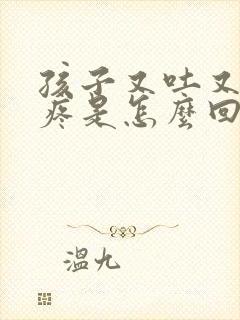 孩子又吐又
疼是怎麼回
溫九